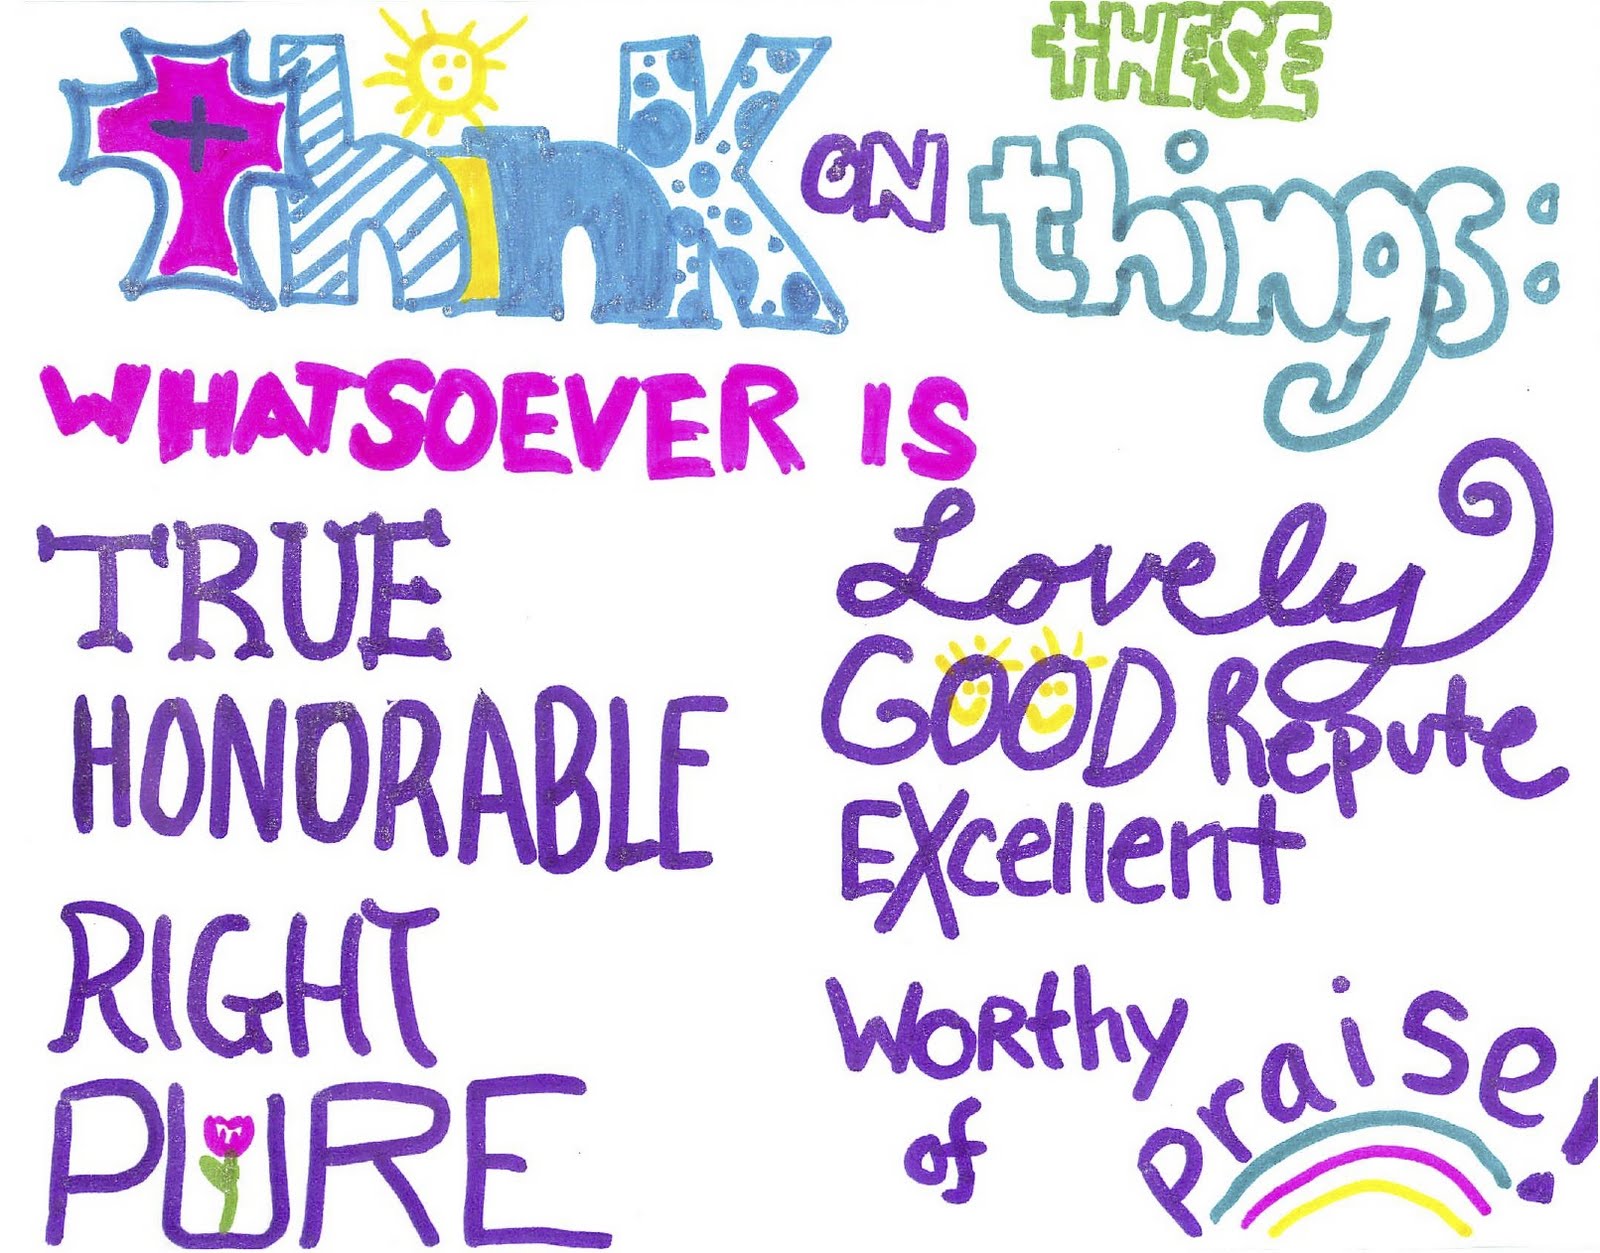 think ON THESE things:
WHATSOEVER IS
TRUE
HONORABLE
RIGHT
PURE
Lovely
GOOD Repute
EXcellent
WORthy
of
praise!